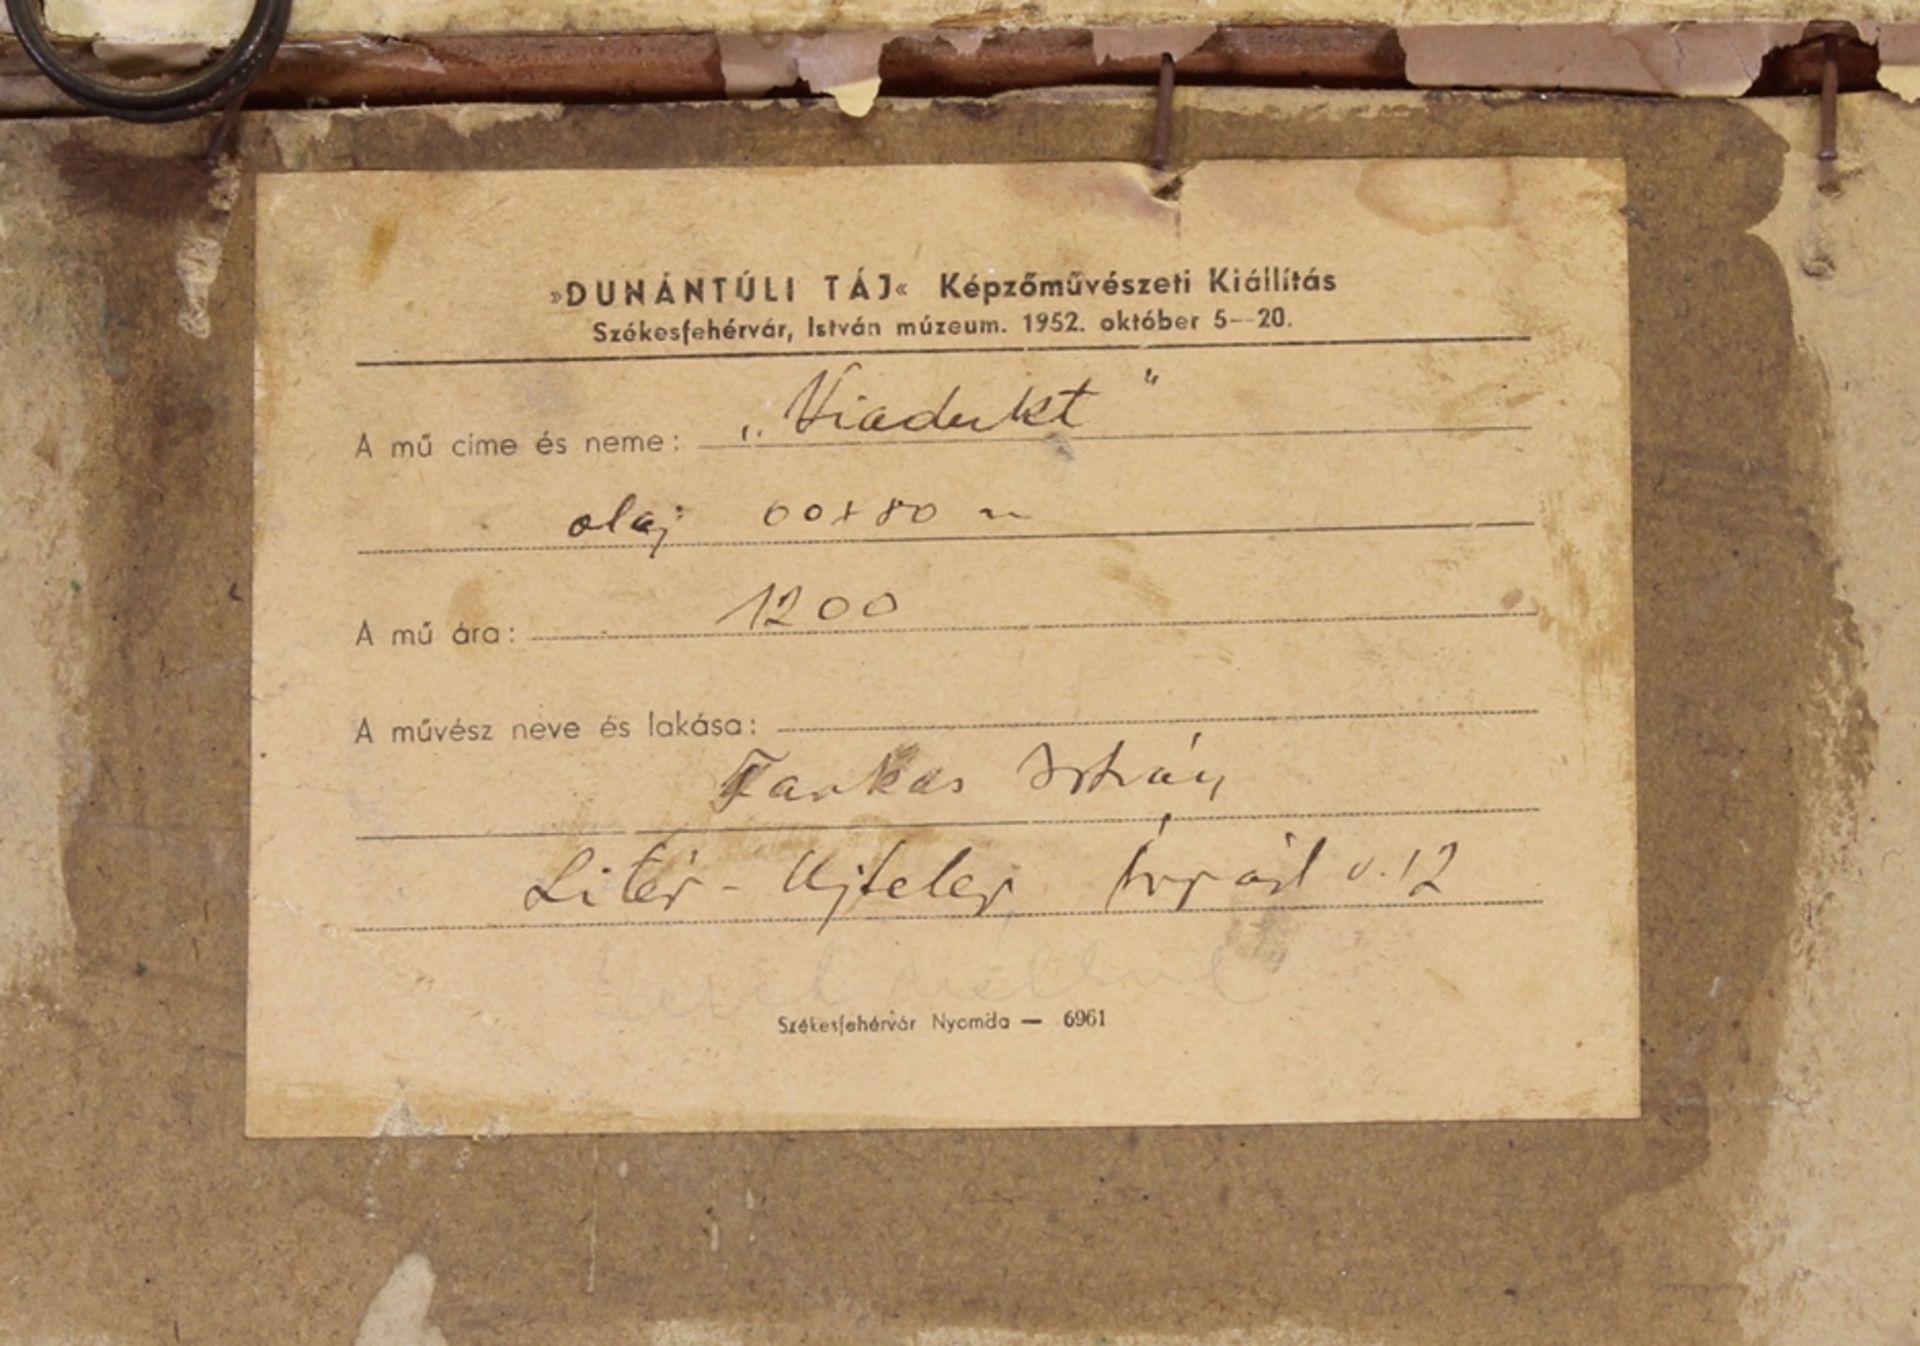 »DUNÁNTÚLI TÁJ« Képzőművészeti Kiállítás
Székesfehérvár, István múzeum. 1952. október 5—20.
A mű címe és neme: „Viadukt"
olaj 60x80
A mű ára: 1200
A művész neve és lakása:
Farkas István
Litér - Ujtelep Árpád u. 12
Székesfehérvár Nyomda — 6961